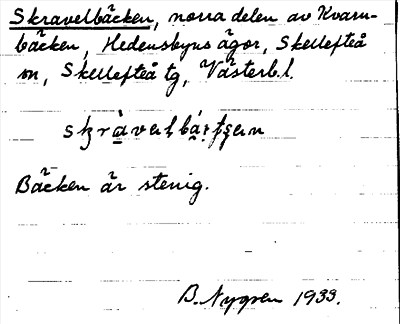 Skravelbäcken, norra delen av Kvarn-
bäcken, Hedensbyns ägor, Skellefteå
sn, Skellefteå tg, Västerb. l.
Bäcken är stenig.
B. Nygren 1933.